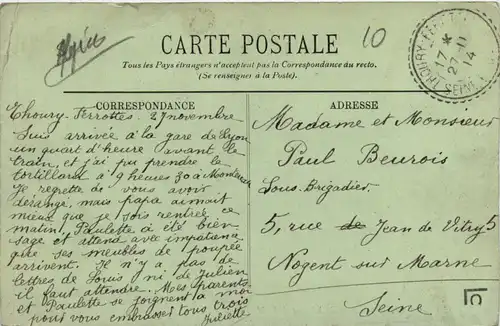 Algérie
CARTE POSTALE
10
Tous les Pays étrangers n'acceptent pas la Correspondance au recto.
(Se renseigner à la Poste).
17 *
27 - 11
14
CORRESPONDANCE
Thoury-Ferrottes. 27 novembre
Suis arrivée à la gare de Lyon
un quart d'heure avant le
train, et j'ai pu prendre le
tortillard à 9 heures 30 à Montereau
Je regrette de vous avoir
dérangé, mais papa aimait
mieux que je sois rentrée ce
matin. Paulette a été bien
sage et attend avec impatience
que ses meubles de poupée
arrivent. Je n'y a pas de
lettres de Louis, ni de Julien
il faut attendre. Mes parents
et Paulette se joignent à moi
pour vous embrasser tous trois
Juliette
ADRESSE
Madame et Monsieur
Paul Beurois
Sous-Brigadier
5, rue de Jean de Vitry 5
Nogent sur Marne
Seine